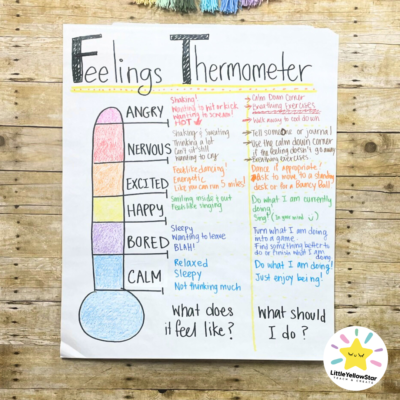 Feelings Thermometer
ANGRY
Shaking!
Wanting to hit or kick
Wanting to scream!
HOT
Calm Down Corner
Breathing Exercises
Walk away to cool down
NERVOUS
Shaking & Sweating
Thinking a lot
Can't sit still
Wanting to cry
Tell someone or journal
Use the calm down corner
if the feeling doesn't go away
Breathing exercises
EXCITED
Feels like dancing!
Energetic
Like you can run 5 miles!
Dance if appropriate!
Ask to move to a standing
desk or for a Bouncy Ball!
HAPPY
Smiling inside & out
Feels like singing
Do what I am currently
doing!
Sing! (in your
BORED
Sleepy
Wanting to leave
BLAH!
Turn what I am doing
into a game
Find something better to
do or finish what I am
doing
CALM
Relaxed
Sleepy
Not thinking much
Do what I am doing!
Just enjoy being!
What does
it feel like?
What should
I do?
LittleYellowStar